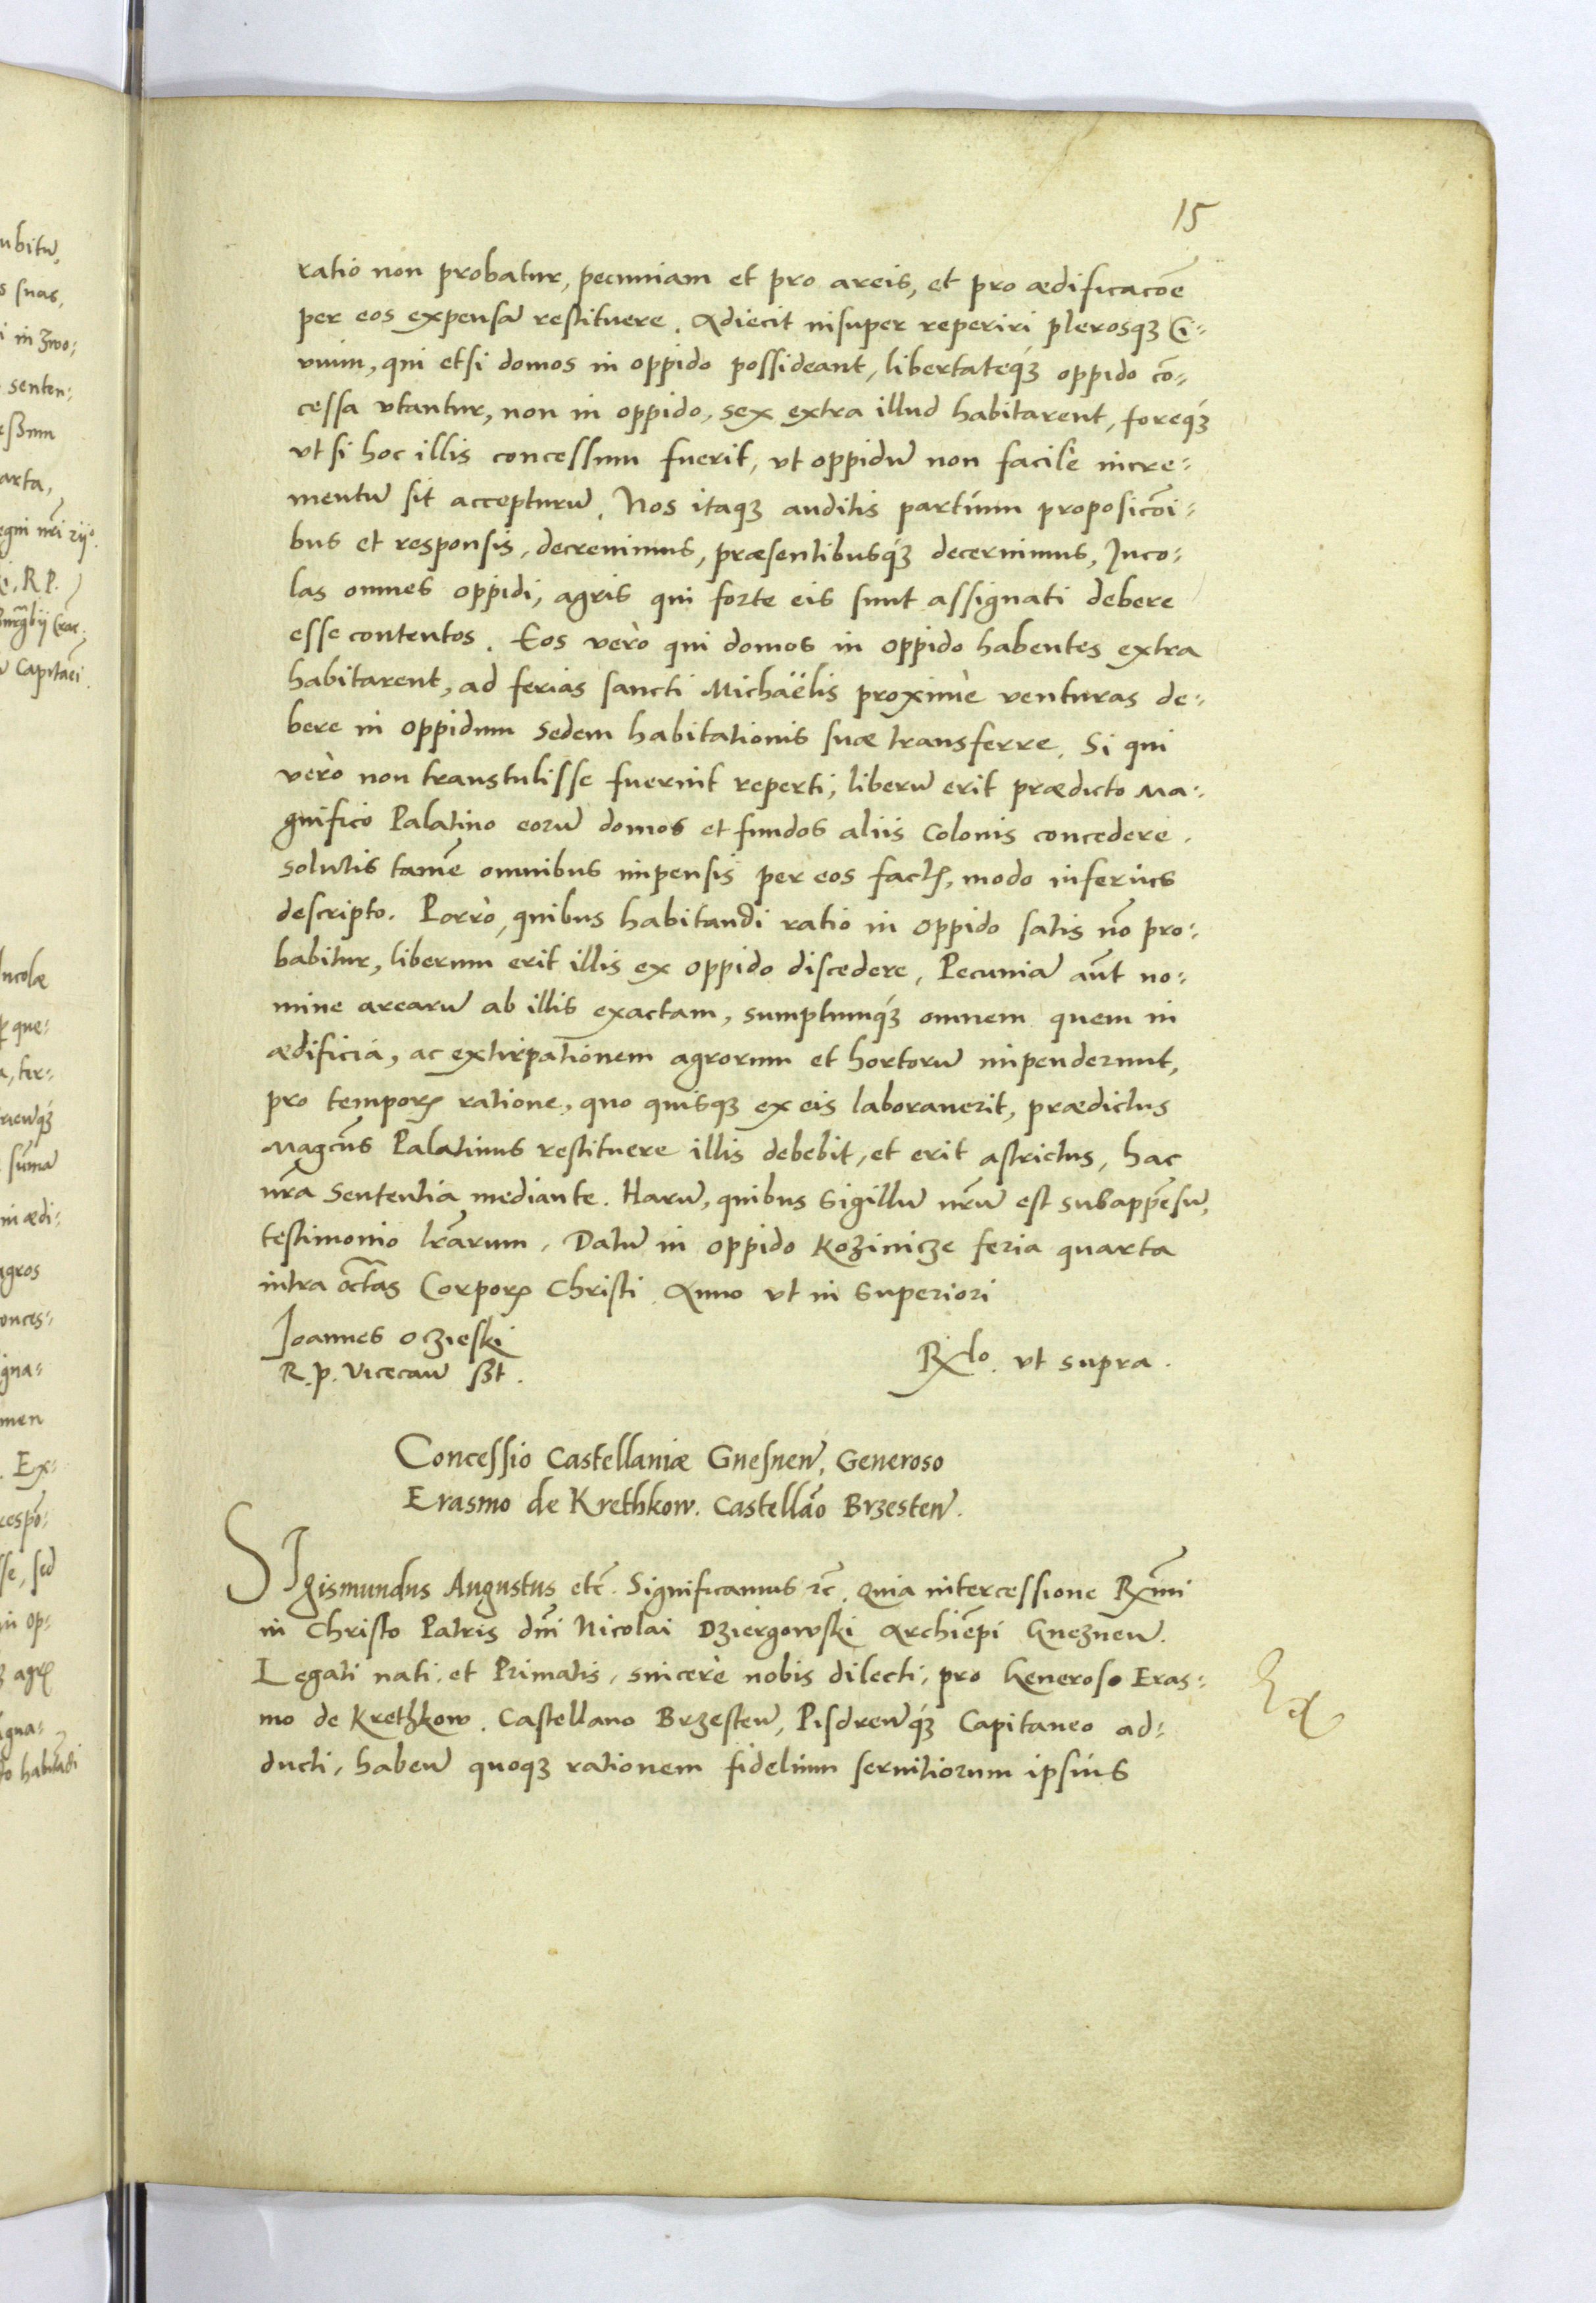 15
ratio non probatur, pecuniam et pro areis, et pro ædificacõe
per eos expensã restituere. Adiecit insuper reperiri plerosqꝫ Ci-
uium, qui etsi domos in oppido possideant, libertateqꝫ oppido cõ-
cessa vtantur, non in oppido, sex extra illud habitarent, foreqꝫ
vt si hoc illis concessum fuerit, vt oppidũ non facilè incre-
mentũ sit accepturũ. Nos itaqꝫ auditis partium proposicõi-
bus et responsis, decreuimus, præsentibusqꝫ decernimus, Inco-
las omnes oppidi, agris qui forte eis sunt assignati debere
esse contentos. Eos verò qui domos in oppido habentes extra
habitarent, ad ferias sancti Michaëlis proximè venturas de-
bere in oppidum sedem habitationis suæ transferre. Si qui
verò non transtulisse fuerint reperti, liberũ erit prædicto Ma-
gnifico Palatino eorũ domos et fundos aliis Colonis concedere.
solutis tamẽ omnibus impensis per eos factꝭ, modo inferius
descripto. Porrò, quibus habitandi ratio in oppido satis nõ pro-
babitur, liberum erit illis ex oppido discedere, Pecuniã aũt no-
mine arearũ ab illis exactam, sumptumqꝫ omnem quem in
ædificia, ac extirpationem agrorum et hortorũ impenderunt,
pro temporꝭ ratione, quo quisqꝫ ex eis laborauerit, prædictus
Magcũs Palatinus restituere illis debebit, et erit astrictus, hac
nr̃a sententia mediante. Harũ, quibus sigillũ nr̃um est subappẽsũ,
testimonio lr̃arum. Datũ in oppido Kozinicze feria quarta
intra octãs Corporꝭ Christi. Anno vt in superiori
Joannes Oczieski
R. P. Vicecañ sßt.
Rlo. vt supra.
Concessio Castellaniæ Gnesneñ, Generoso
Erasmo de Krethkow. Castellão Brzesteñ.
SIgismundus Augustus etc̃. Significamus ꝛc̃. Quia intercessione Rx̃mi
in Christo Patris dñi Nicolai Dziergowski Archiẽpi Gnezneñ.
Legati nati, et Primatis, sincerè nobis dilecti, pro Generoso Eras-
mo de Krethkow. Castellano Brzesteñ, Pisdreñqꝫ Capitaneo ad-
ducti, habeñ quoqꝫ rationem fidelium seruitiorum ipsius